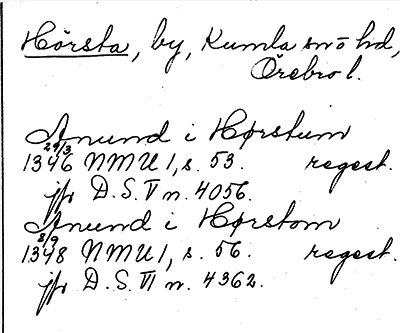 Hörsta, by, Kumla sn o hd,
Örebro l.
Anund i Hørstum
1346 29/3 NMU 1, s. 53. regest.
jfr D. S. V n. 4056.
Anund i Hørstom
1348 8/9 NMU 1, s. 56. regest.
jfr D. S. VI n. 4362.